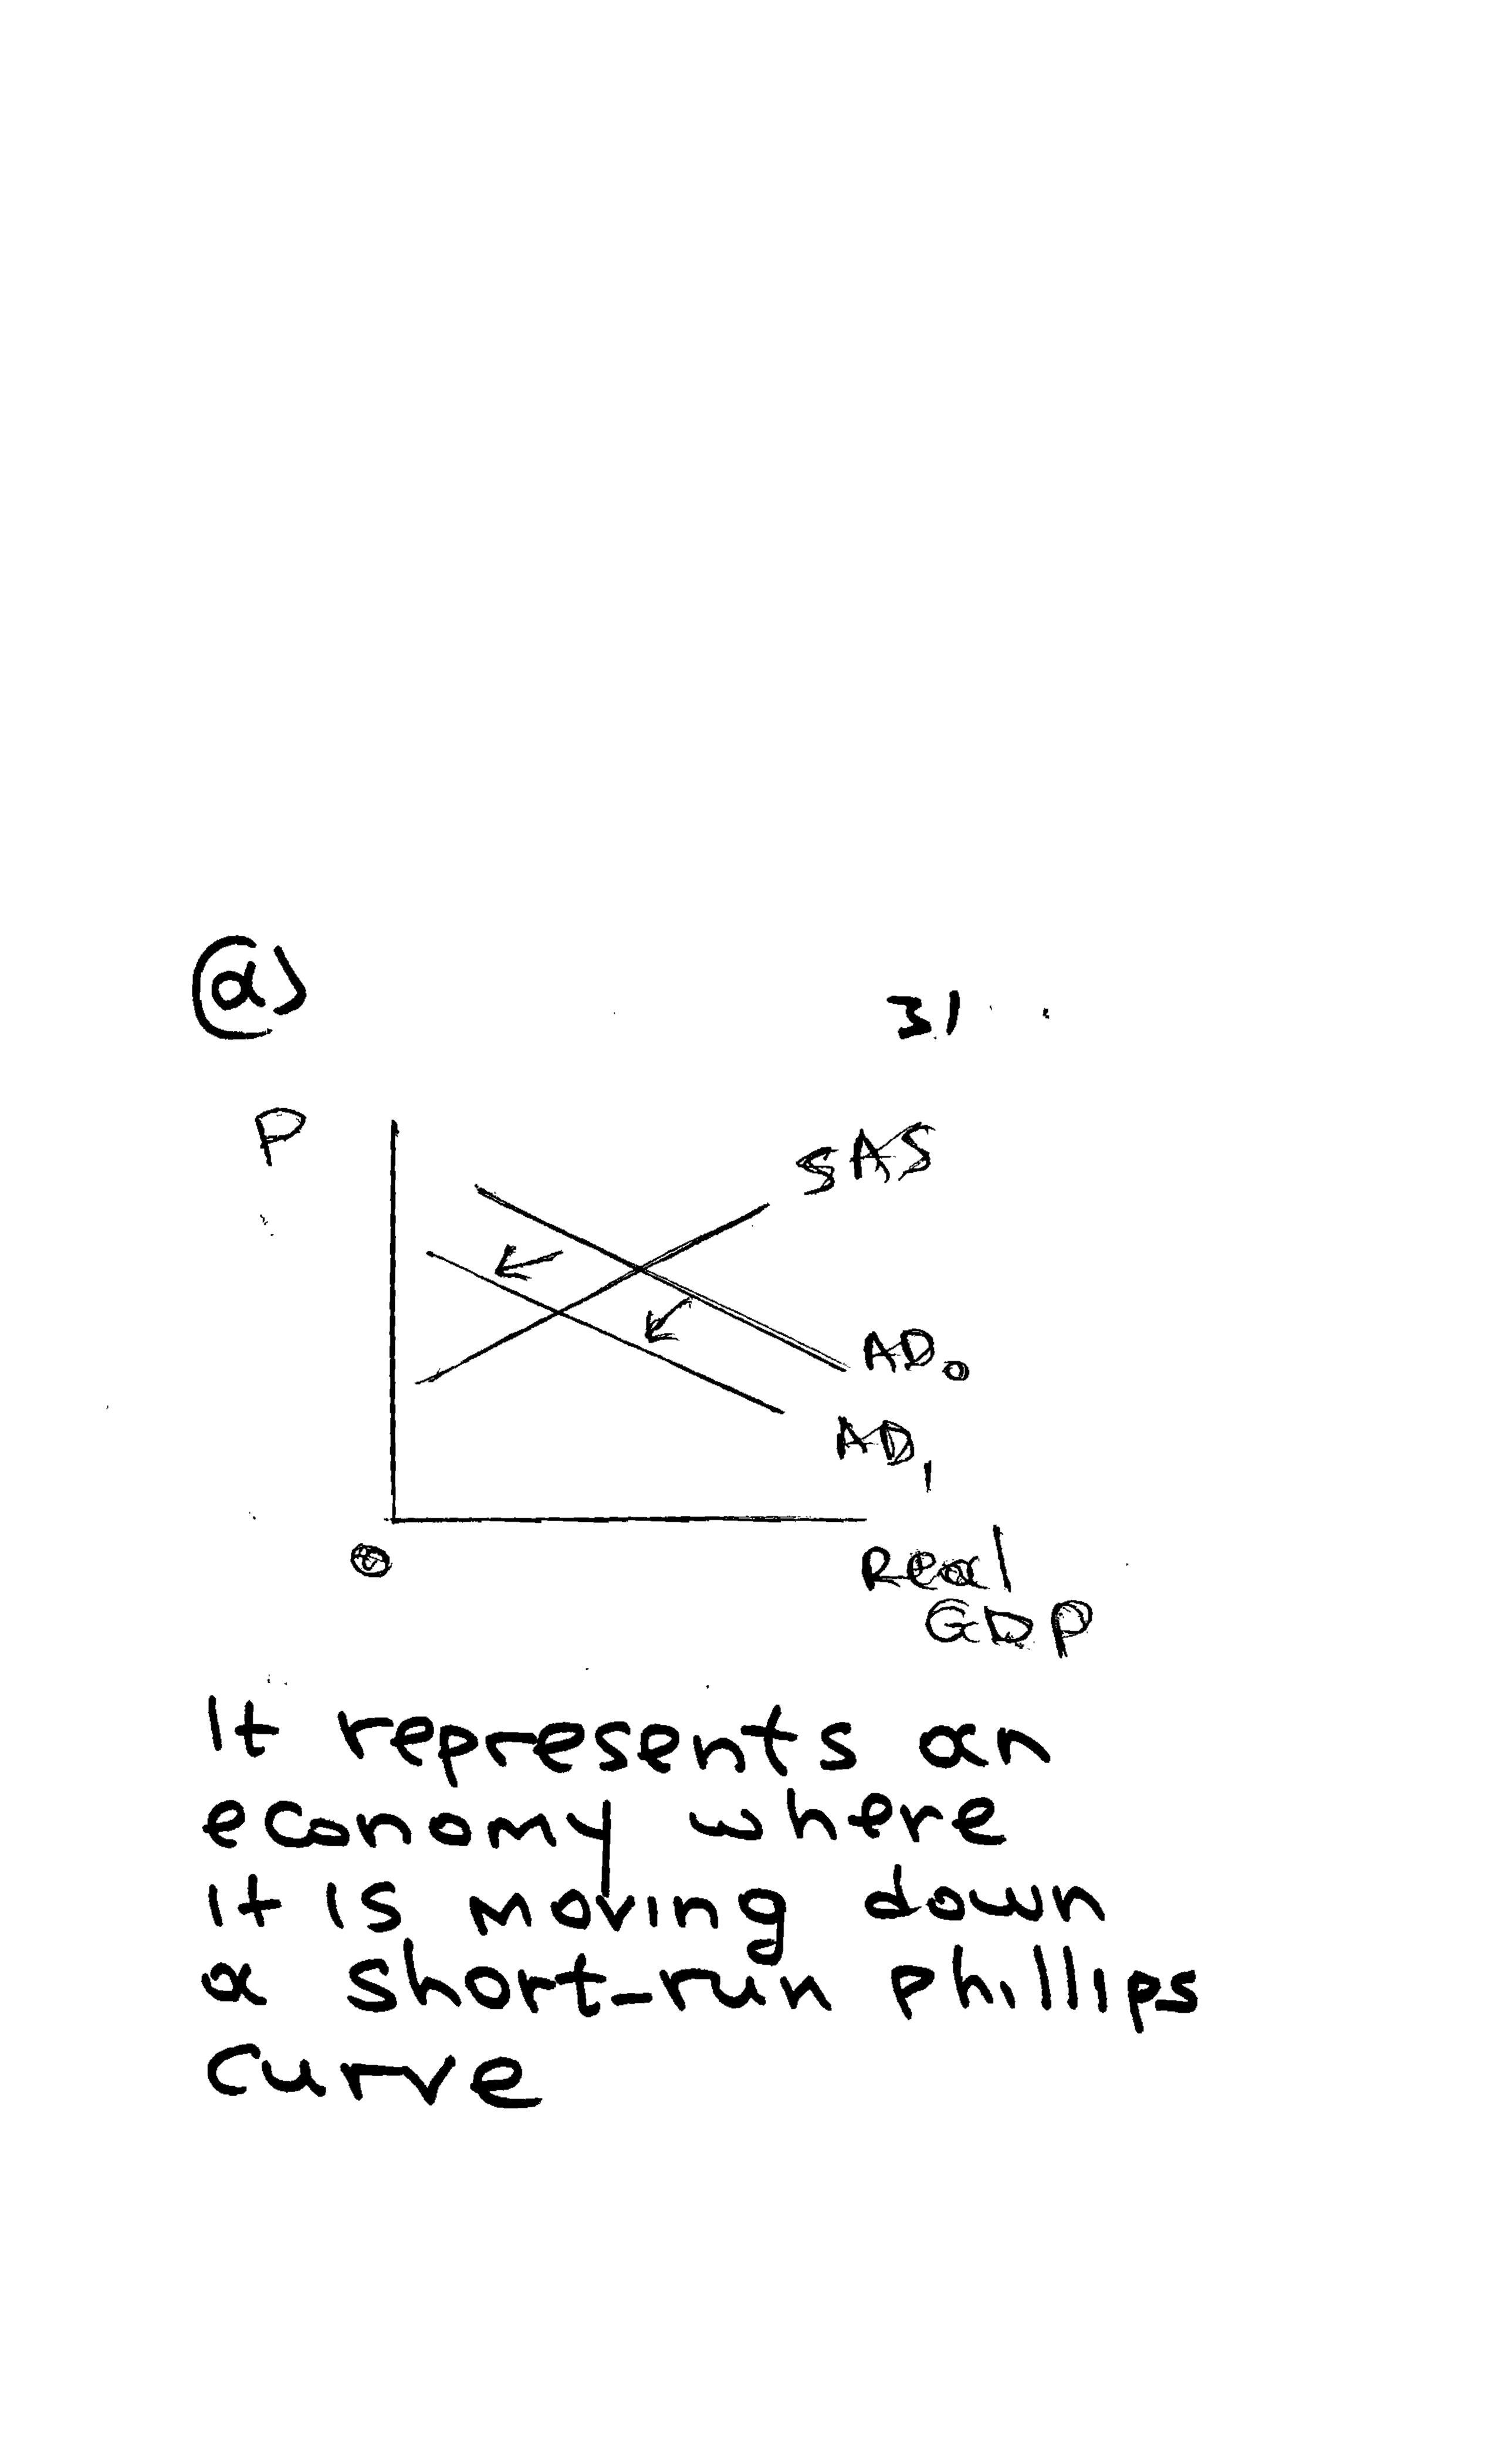 (a)
31
P
SAS
AD₀
AD₁
0
Real
GDP
It represents an
economy where
it is moving down
a short-run phillips
curve